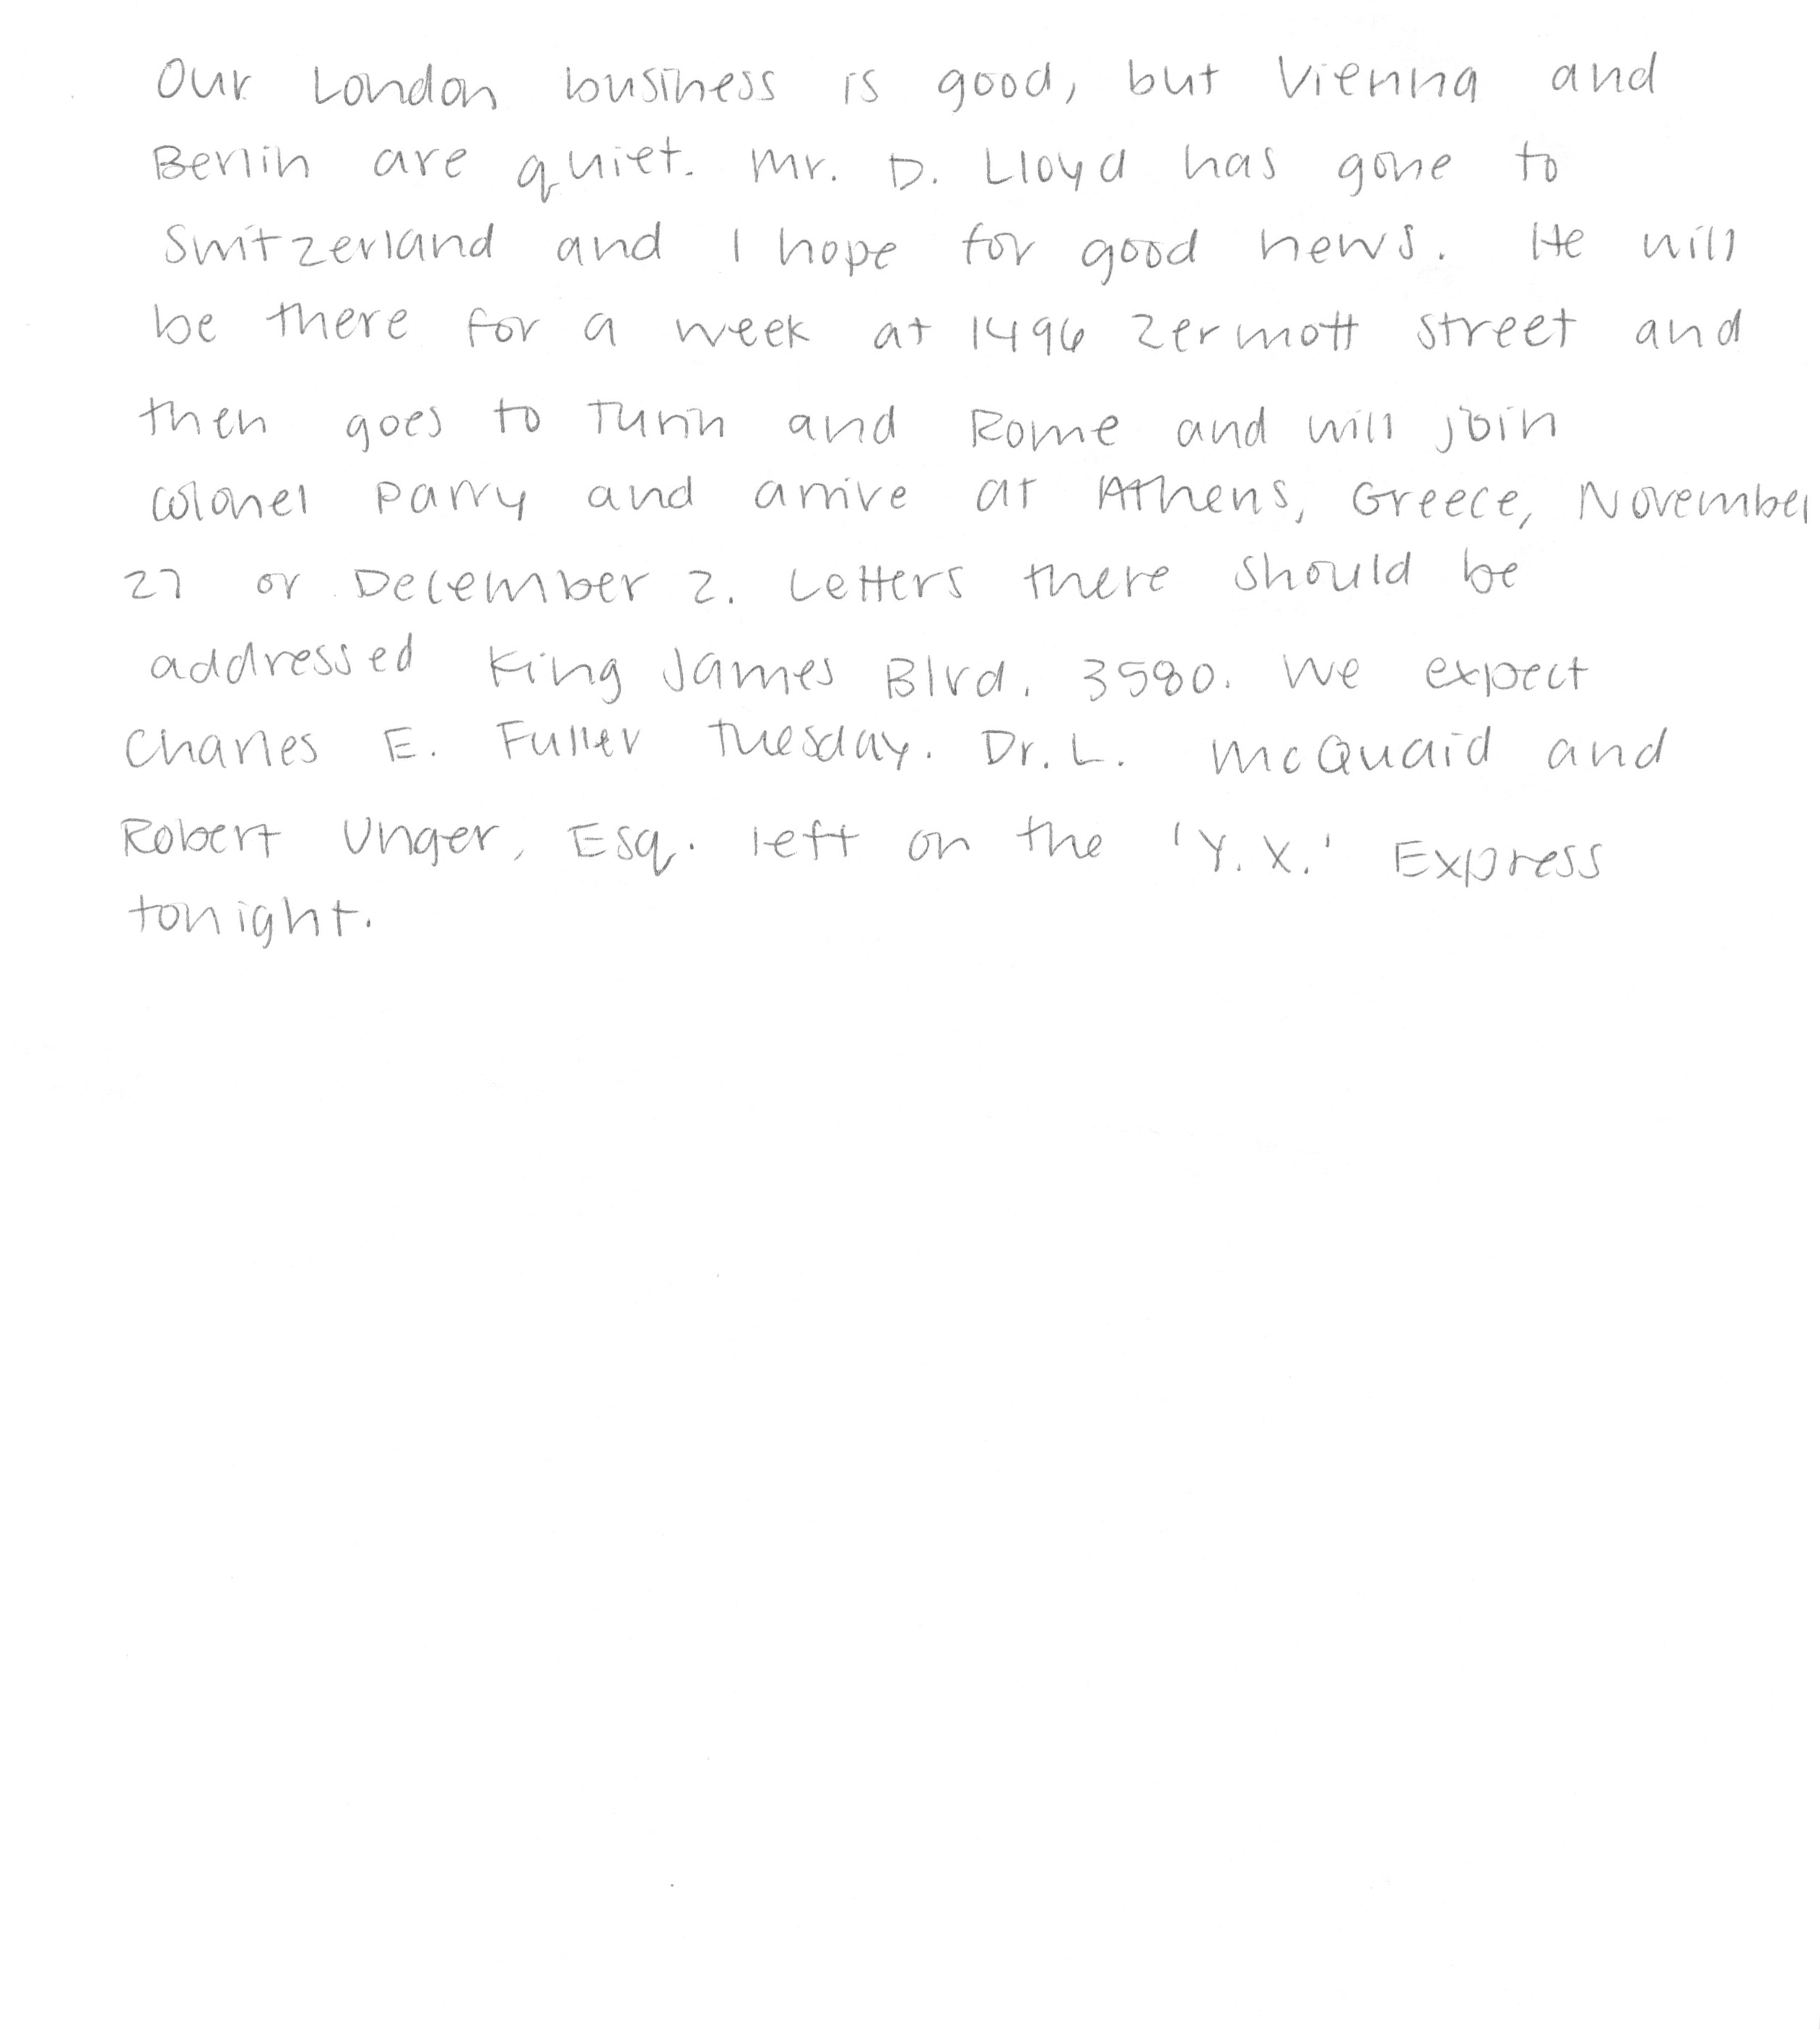 Our London business is good, but Vienna and
Berlin are quiet. Mr. D. Lloyd has gone to
Switzerland and I hope for good news. He will
be there for a week at 1496 Zermott street and
then goes to Turin and Rome and will join
colonel Parry and arrive at Athens, Greece, November
27 or December 2. Letters there should be
addressed King James Blvd. 3580. We expect
Charles E. Fuller Tuesday. Dr. L. McQuaid and
Robert Unger, Esq. left on the 'Y. X.' Express
tonight.